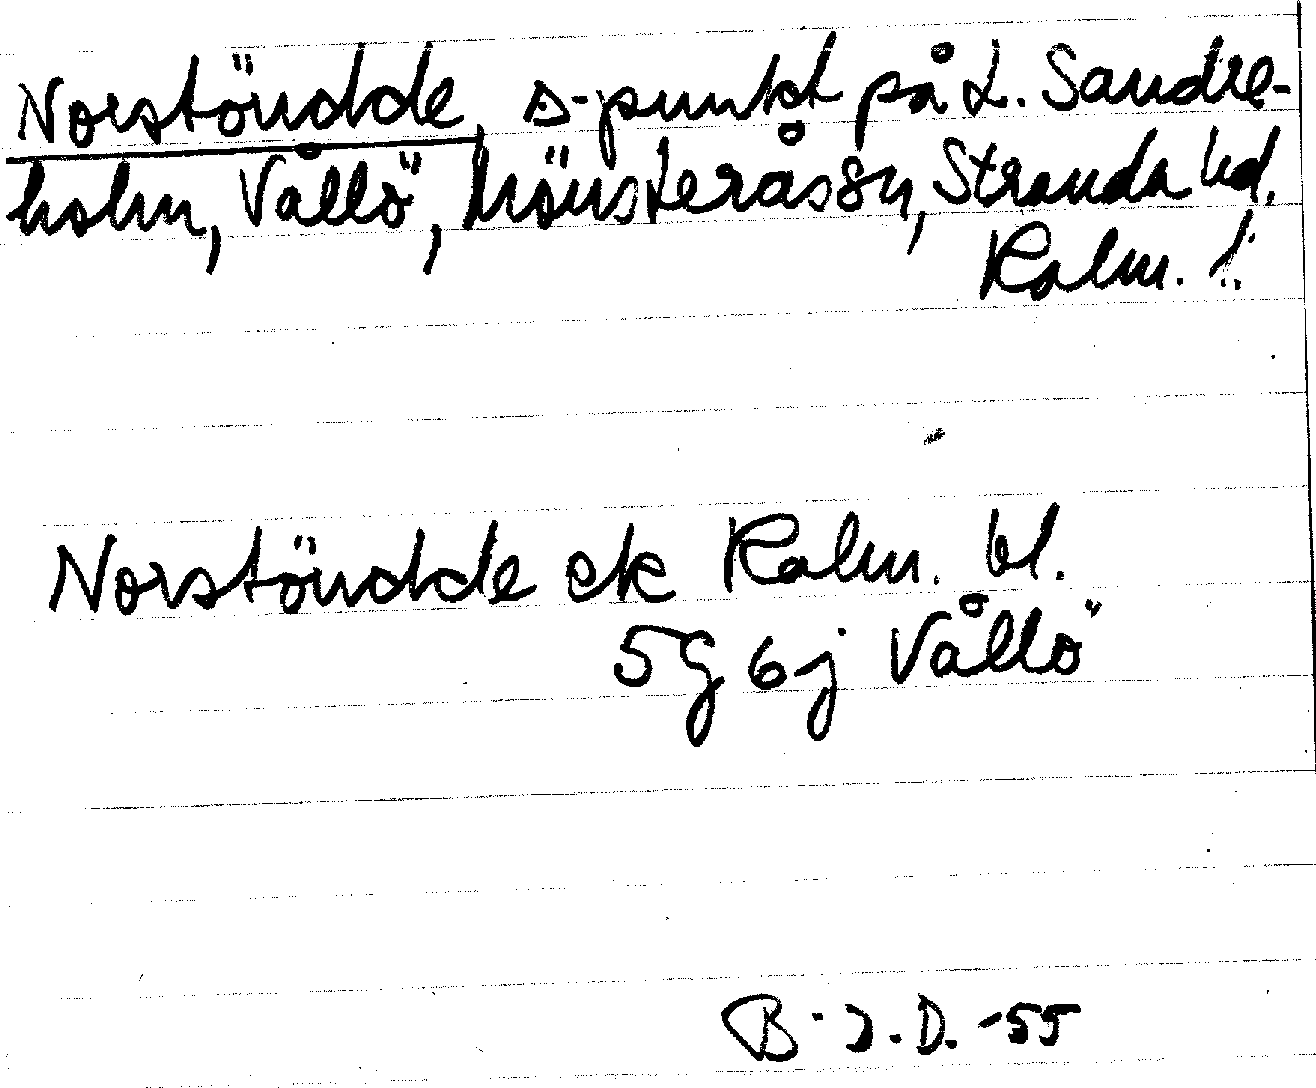 Norstöudde, s-punkt på L. Sandre-
holm, Vållö, Mönsterås sn, Stranda hd.
Kalm. l.
Norstöudde ek Kalm. bl.
5g 6j Vållö
B. J. D. -55